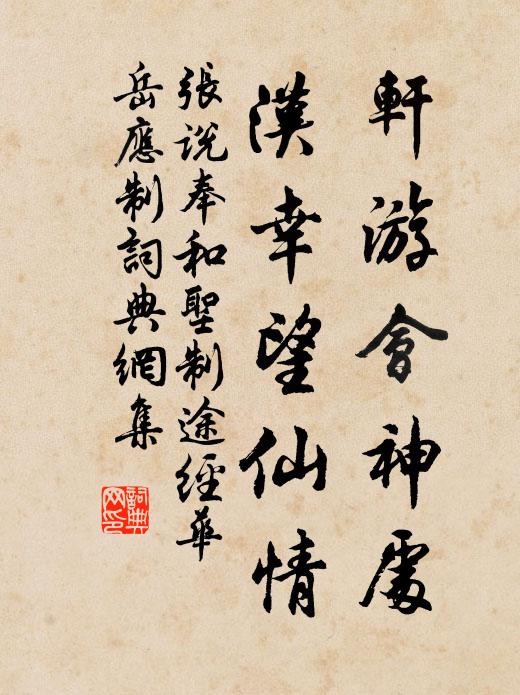 軒游會神處
漢幸望仙情
張說奉和聖制途經華
岳應制詞典網集
詞典
网印